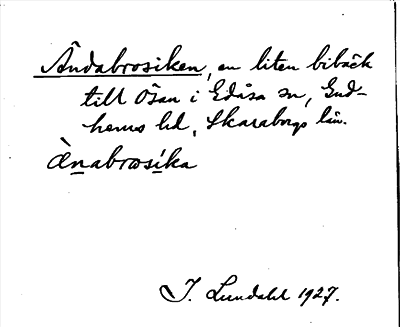 Ändabrosiken, en liten bibäck
till Ösan i Edåsa sn, Gud-
hems hd, Skaraborgs län.
Ànabrosíka
I. Lundahl 1927.